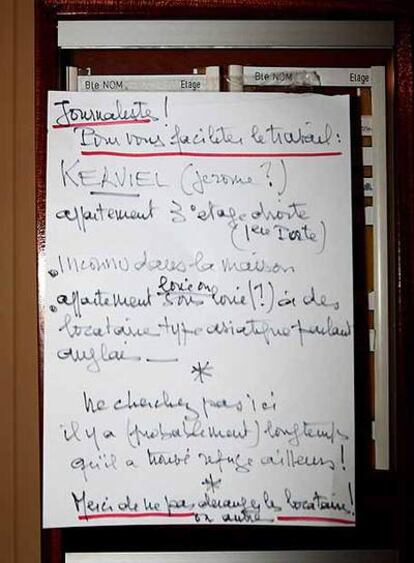 Bte NOM Etage Bte NOM Etage
Journaliste!
Pour vous faciliter le travail :
KERVIEL (Jerome?)
appartement 3° etage droite
(1ere Porte)
• Inconnu dans la maison
loué ou
• appartement sous loué (?) à des
locataire type asiatique parlant
anglais —
*
Ne cherchez pas ici
il y a (probablement) longtemps
qu'il a trouvé refuge ailleurs!
*
Merci de ne pas deranger les locataire!
ou autres